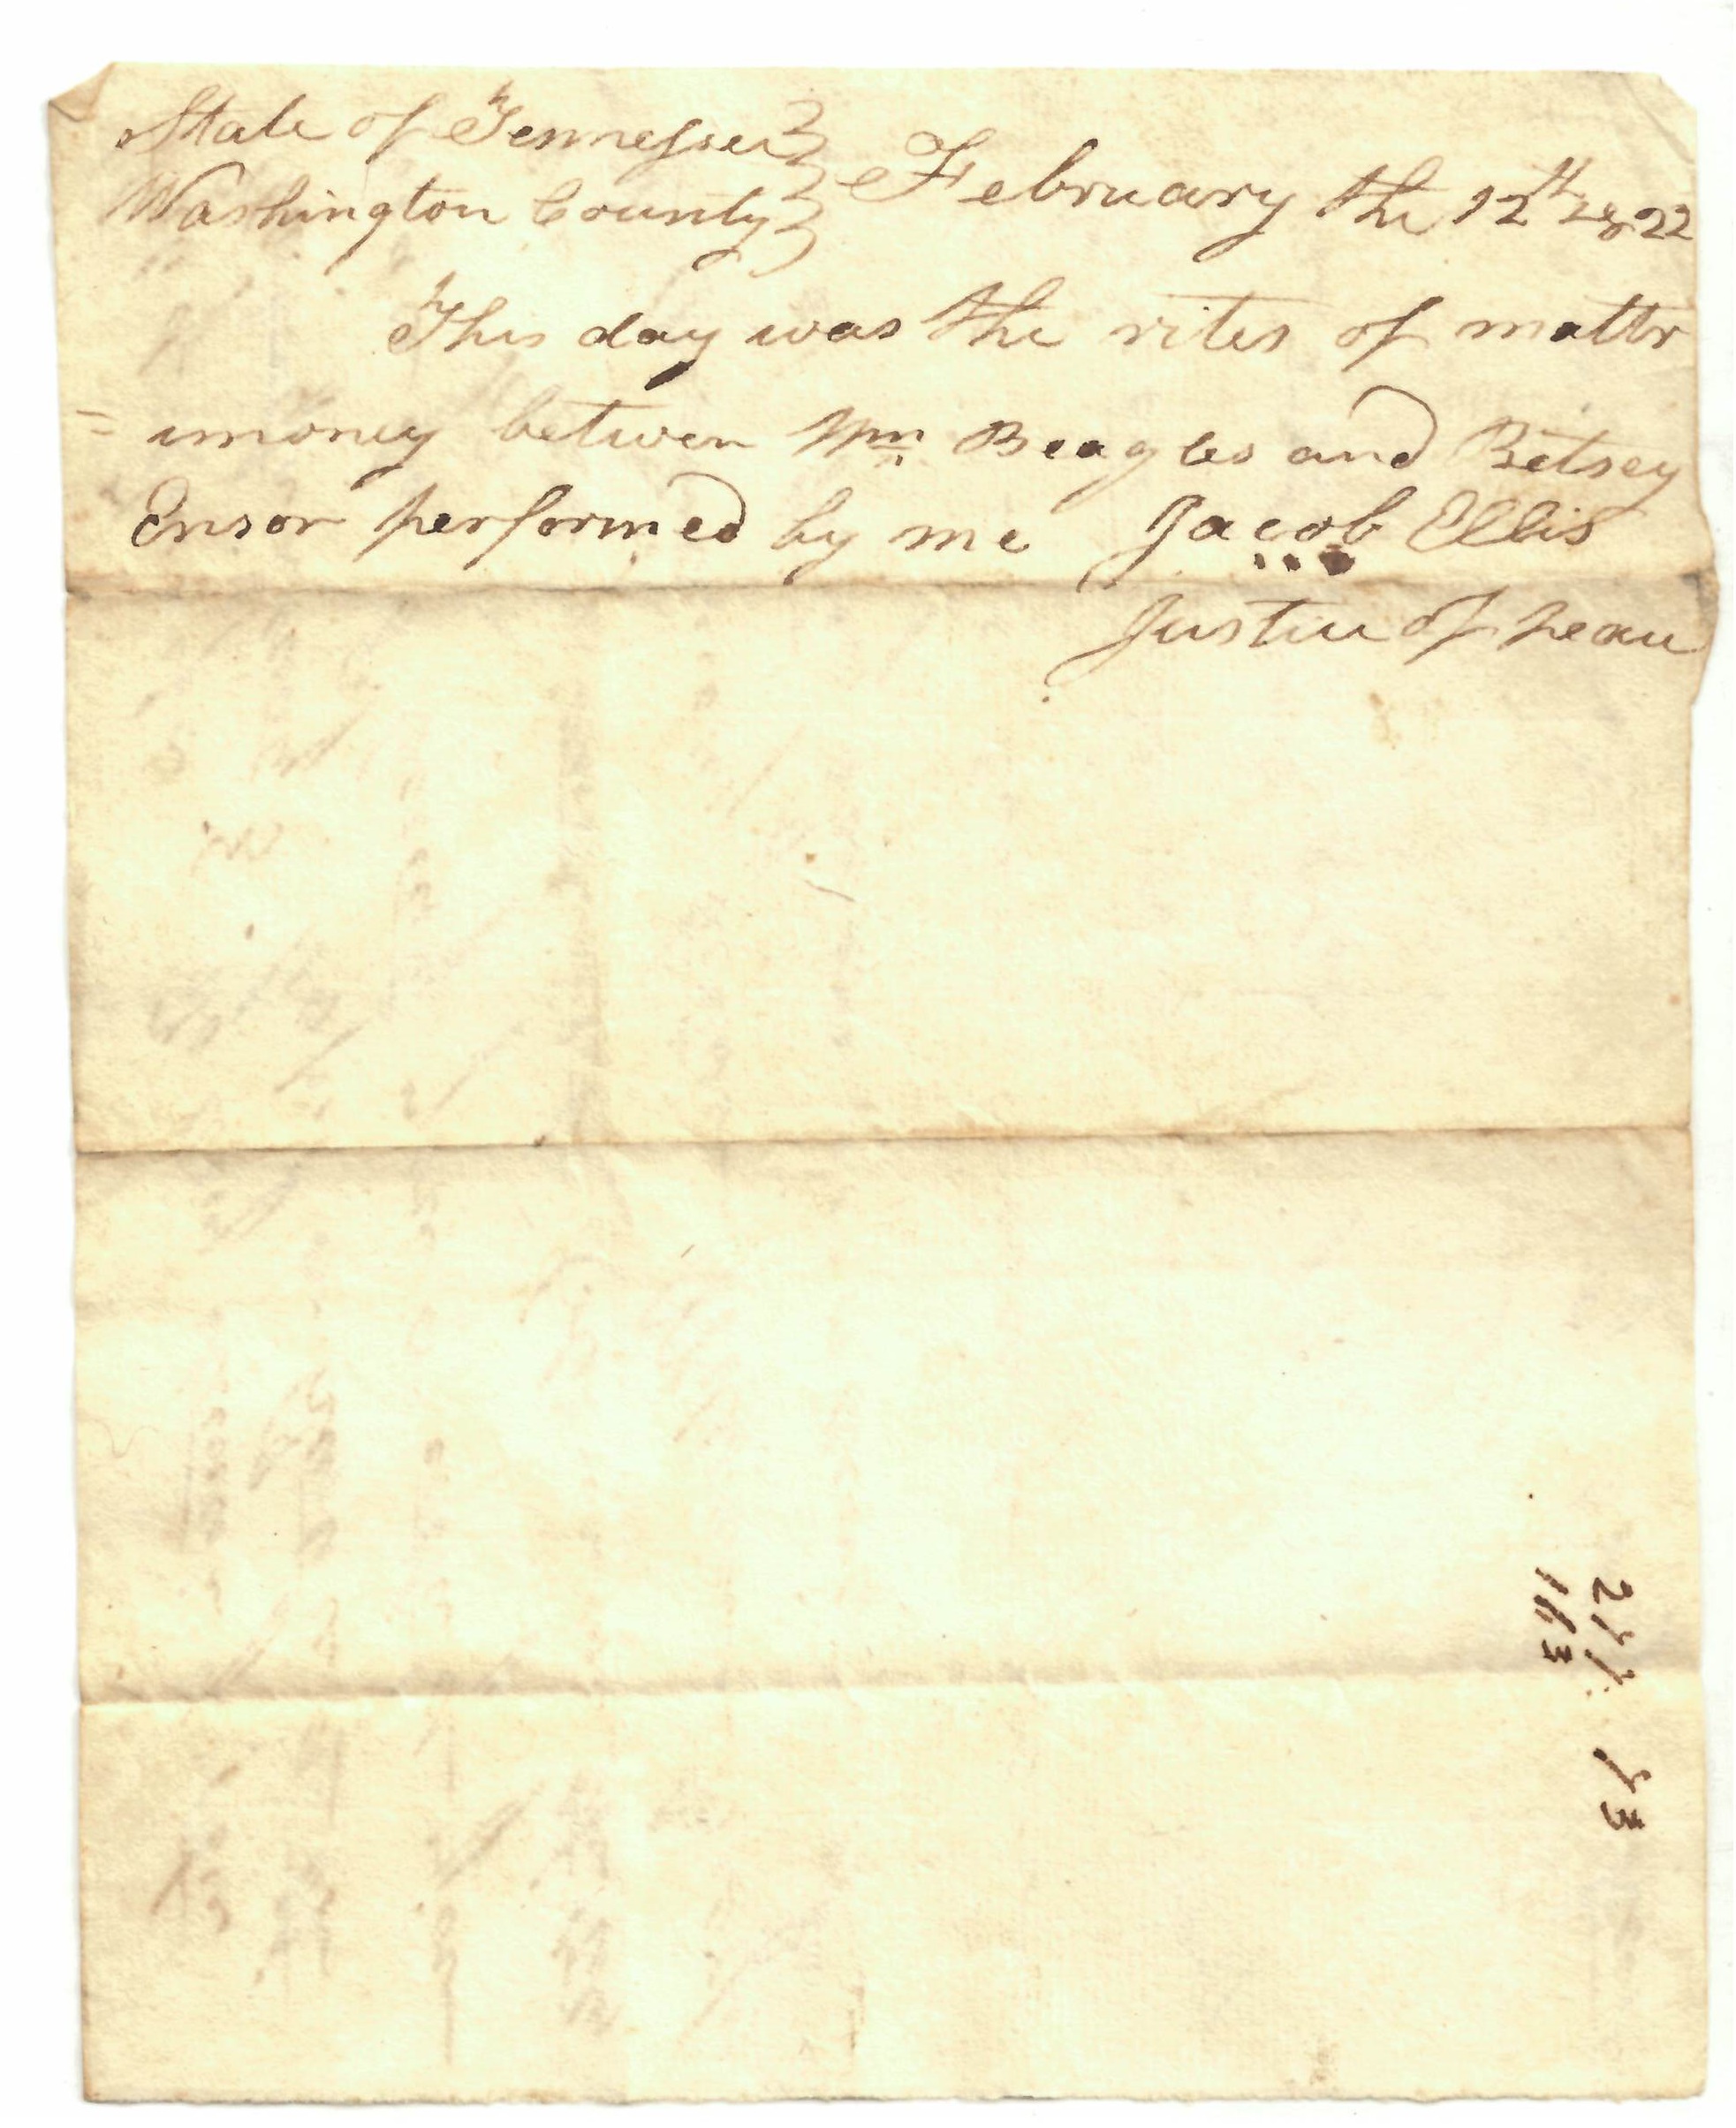 State of Tennessee
Washington County } February the 12th 1822
This day was the rites of mattr
= imoney between Wm Beagles and Betsey
Ensor performed by me Jacob Ellis
Justice of peace
163